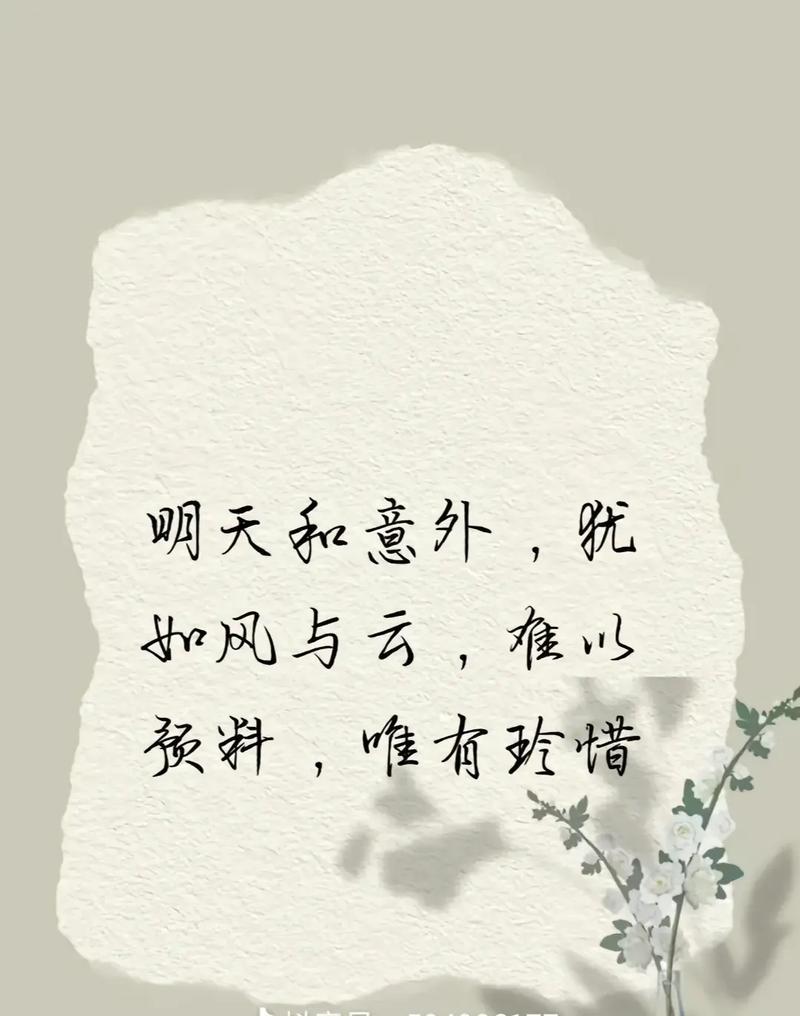 明天和意外，犹
如风与云，难以
预料，唯有珍惜